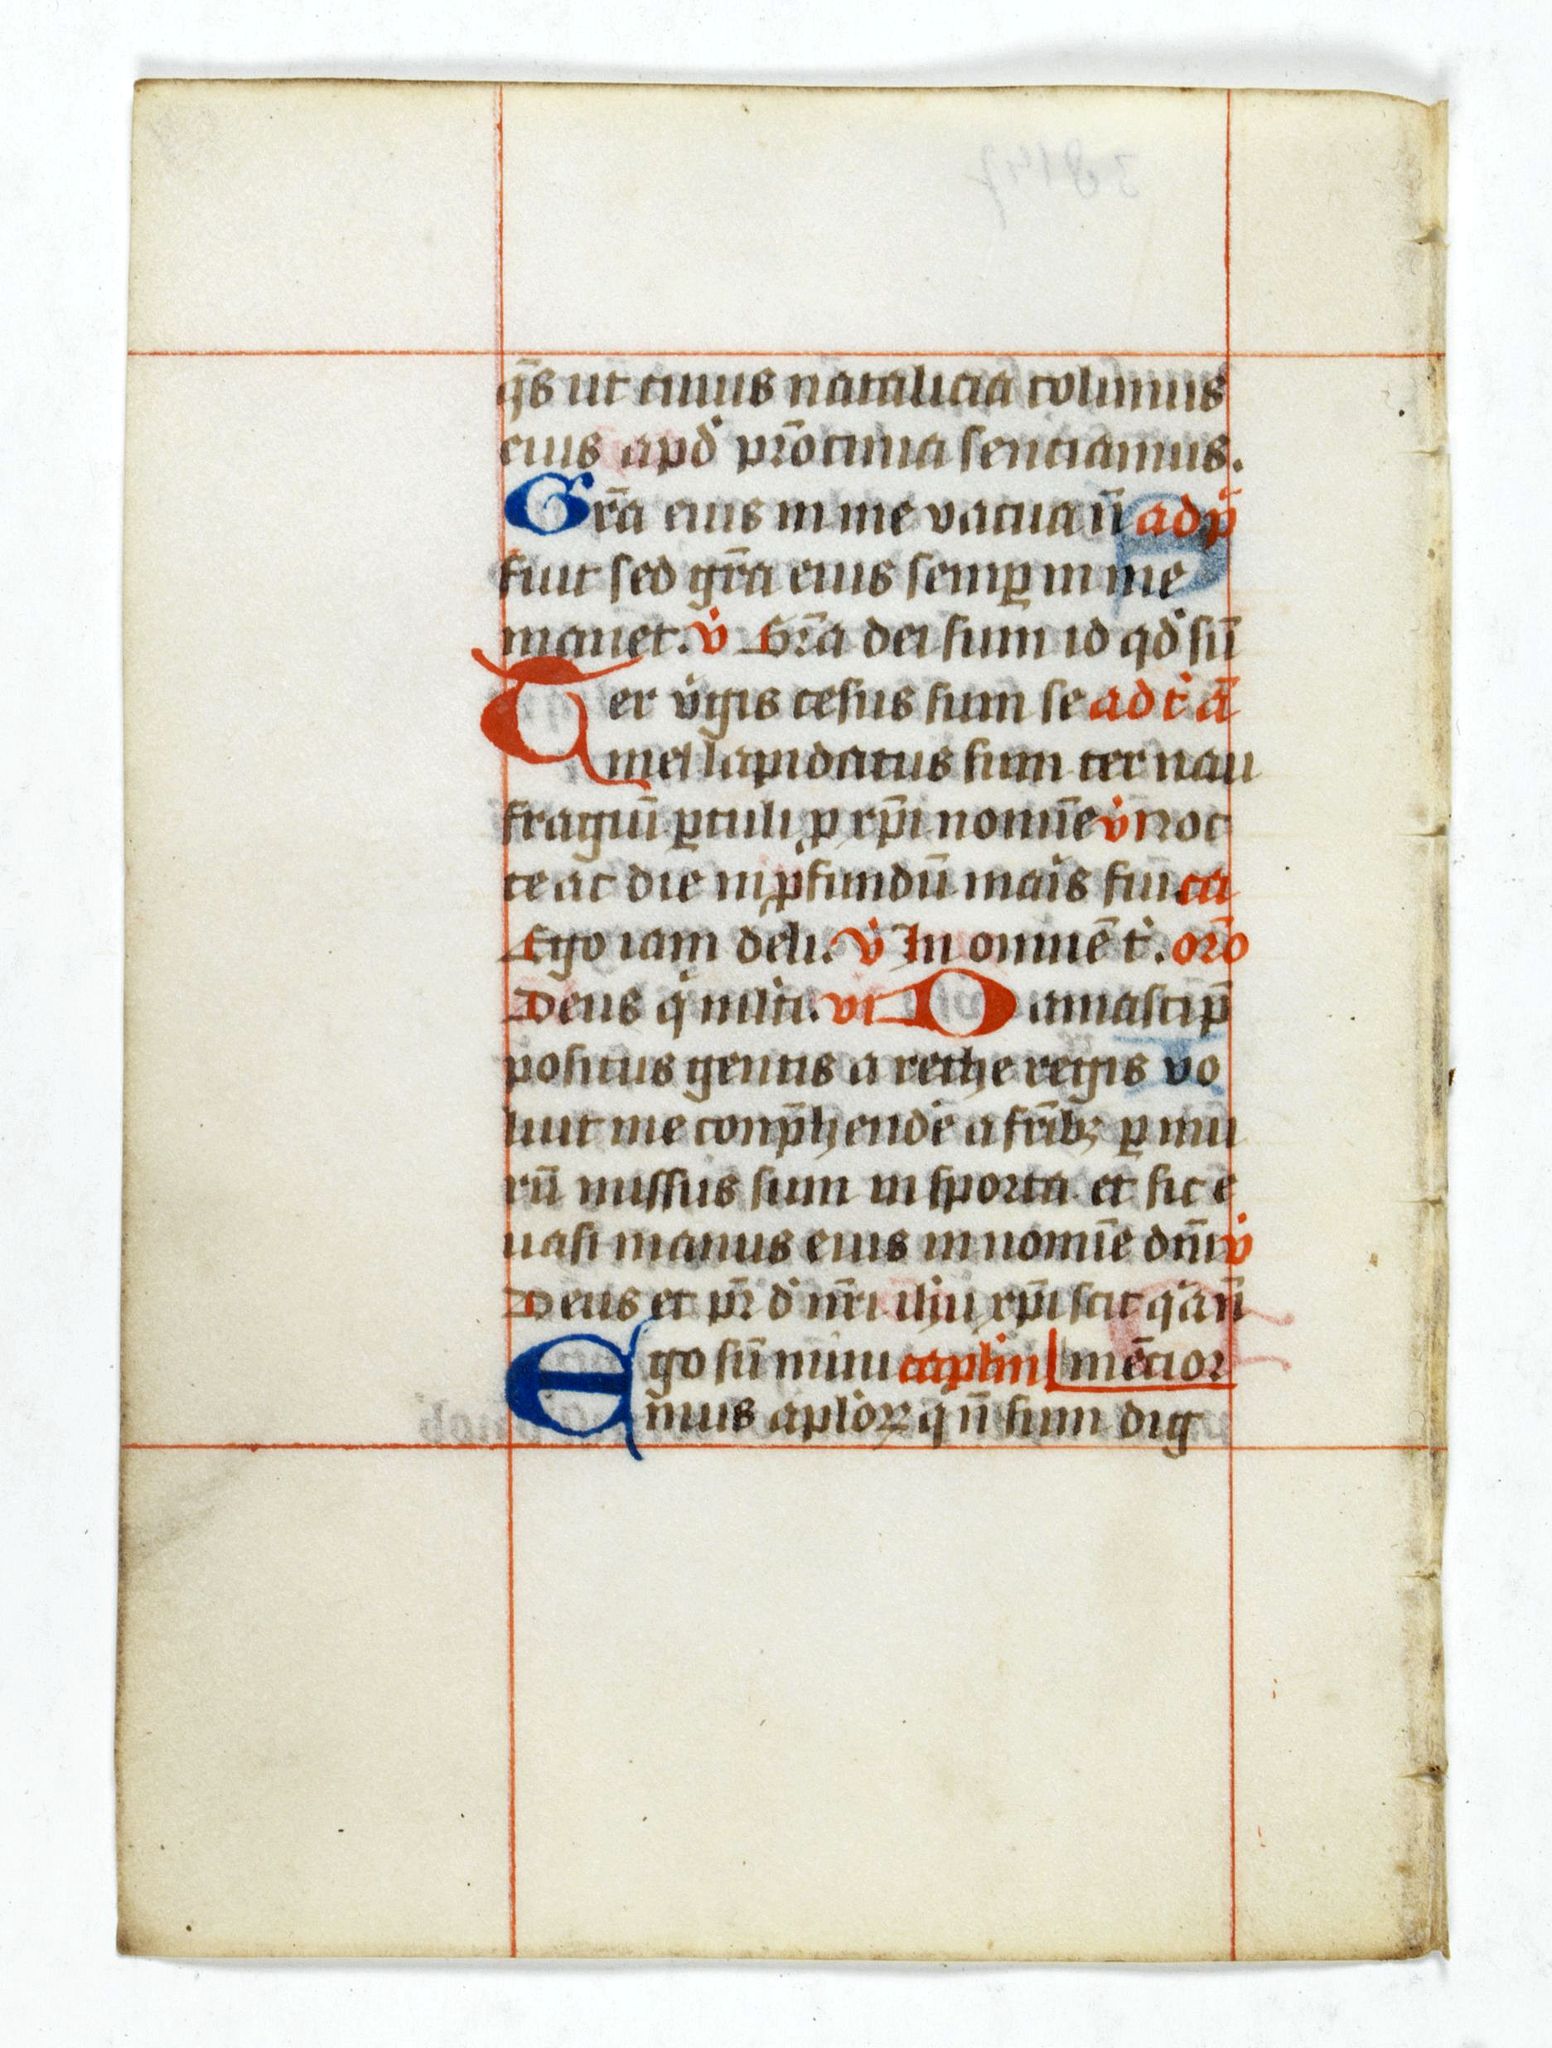 q̄s ut cuius natalicia colimus
eius apd̕ pr̄ocinia senciamus.
Gr̄a eius in me vacua n̄ ad p̕
fuit sed gr̄a eius semꝑ in me
manet. v̕ Gr̄a dei sum id qd̕ sū
Ter v̕gis cesus sum se ad t̕ ā
mel lapidatus sum ter nau
fragiū ꝑtuli ꝓ xp̄i nomīe v̕ Noc
te ac die in ꝓfundū maīs fuī. ca
Ego iam deli. v̕ In omnē t̕. or̄o
Deus q̕ mlti. vi Damasci p̄
positus gentis arethe regis vo
luit me conp̄hendē a frīb; ꝑ mu
rū missus sum in sporta et sic e
uasi manus eius in nomīe dn̄i v̕
Deus et pr̄ d̕ nr̄i ihu xp̄i scit q̕a n̄
Ego sū mīmu capl̄m mēcior
mus apl̕oꝝ q̄ n̄ sum dig